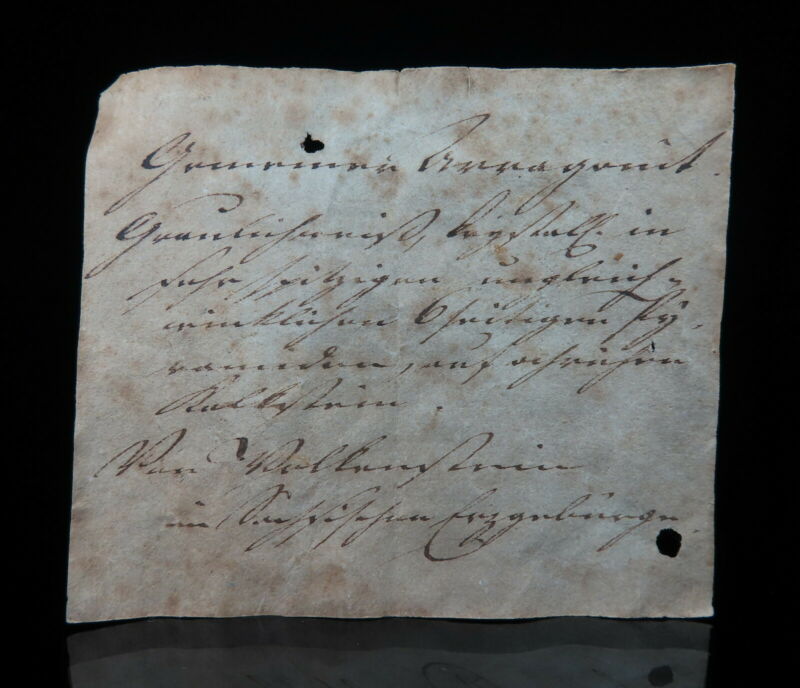 Gemeiner Arragonit.
Graulichweiß, krystall. in
sehr spitzigen ungleich-
winklichen 6seitigen Py-
ramiden, auf
Kalkstein.
Von Wolkenstein
im Sächsischen Erzgebürge.